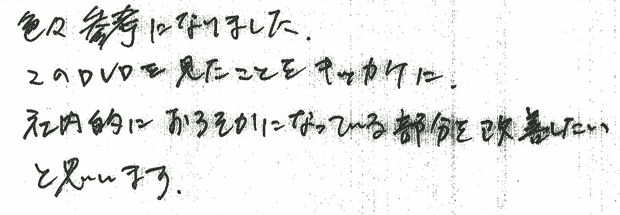 色々参考になりました.
このDVDを見たことをキッカケに.
社内的におろそかになっている部分を改善したい
と思います.